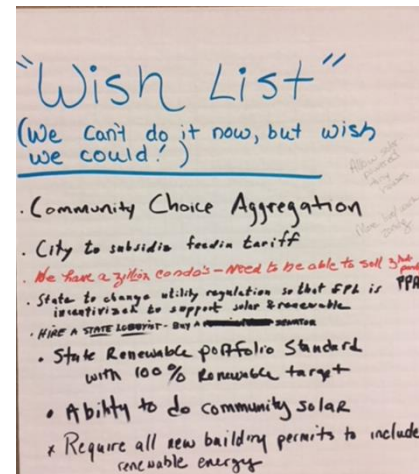 "Wish List"
(We can't do it now, but wish
we could!)
· Community Choice Aggregation
· City to subsidize feedin tariff
· We have a zillion condo's - Need to be able to sell 3rd party
PPA
· State to change utility regulation so that FPL is
incentivized to support solar & renewable
· HIRE A STATE LOBBYIST - BUY A SENATOR
• State Renewable portfolio Standard
with 100% Renewable target
• Ability to do community solar
* Require all new building permits to include
renewable energy